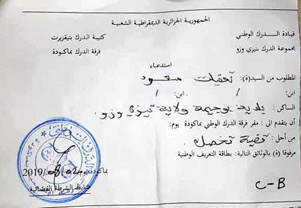 الجمهورية الجزائرية الديمقراطية الشعبية
قيادة الدرك الوطني
كتيبة الدرك بتيقزيرت
مجموعة الدرك بتيزي وزو
فرقة الدرك بماكودة
استدعاء
المطلوب من السيد(ة): مسعود
ابن: / ابن: /
الساكن: بلدية بوجيمة ولاية تيزي وزو
أن يتقدم إلى: مقر فرقة الدرك الوطني بماكودة يوم:
من أجل: قضية تخصك
مرفوقا (ة) بالوثائق التالية: بطاقة التعريف الوطنية
C-B
بماكودة يوم 2019
ضابط الشرطة القضائية